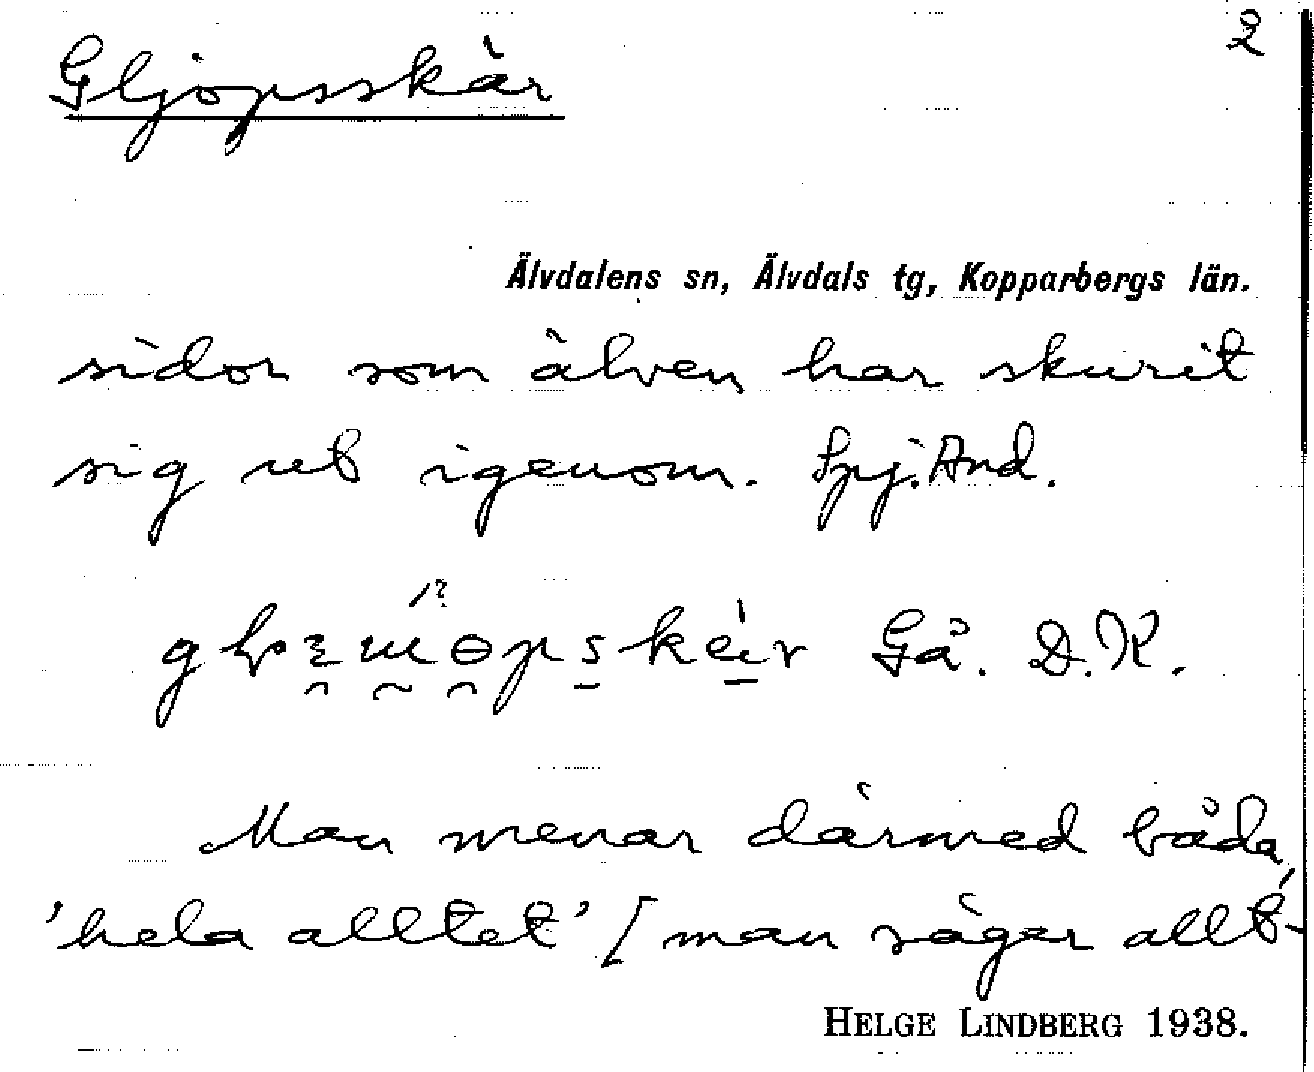 2
Gljöpsskär
Älvdalens sn, Älvdals tg, Kopparbergs län.
sidor som älven har skurit
sig ut igenom. Spj. And.
Gå. D.K.
Man menar därmed båda,
'hela alltet' [man säger allt-
HELGE LINDBERG 1938.